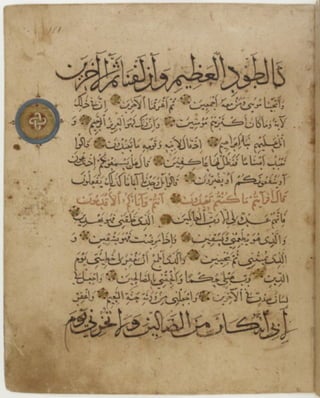 كالطود العظيم وأزلفنا ثم الآخرين
وأنجينا موسى ومن معه أجمعين ثم أغرقنا الآخرين إن في ذلك
لآية وما كان أكثرهم مؤمنين وإن ربك لهو العزيز الرحيم و
اتل عليهم نبأ إبراهيم إذ قال لأبيه وقومه ما تعبدون قالوا
نعبد أصناما فنظل لها عاكفين قال هل يسمعونكم إذ تدعون
أو ينفعونكم أو يضرون قالوا بل وجدنا آباءنا كذلك يفعلون
قال أفرأيتم ما كنتم تعبدون أنتم وآباؤكم الأقدمون
فإنهم عدو لي إلا رب العالمين الذي خلقني فهو يهدين
والذي هو يطعمني ويسقين وإذا مرضت فهو يشفين و
الذي يميتني ثم يحيين والذي أطمع أن يغفر لي خطيئتي يوم
الدين رب هب لي حكما وألحقني بالصالحين واجعل لي
لسان صدق في الآخرين واجعلني من ورثة جنة النعيم واغفر
لأبي إنه كان من الضالين ولا تخزني يوم